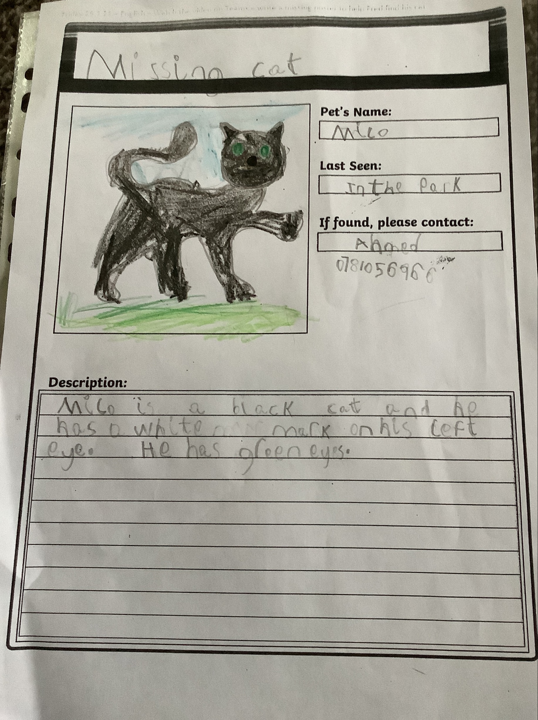 Missing cat
Pet's Name:
Milo
Last Seen:
In the Park
If found, please contact:
Ahmed
Description:
Milo is a black cat and he
has a white mark on his left
eye. He has green eyes.